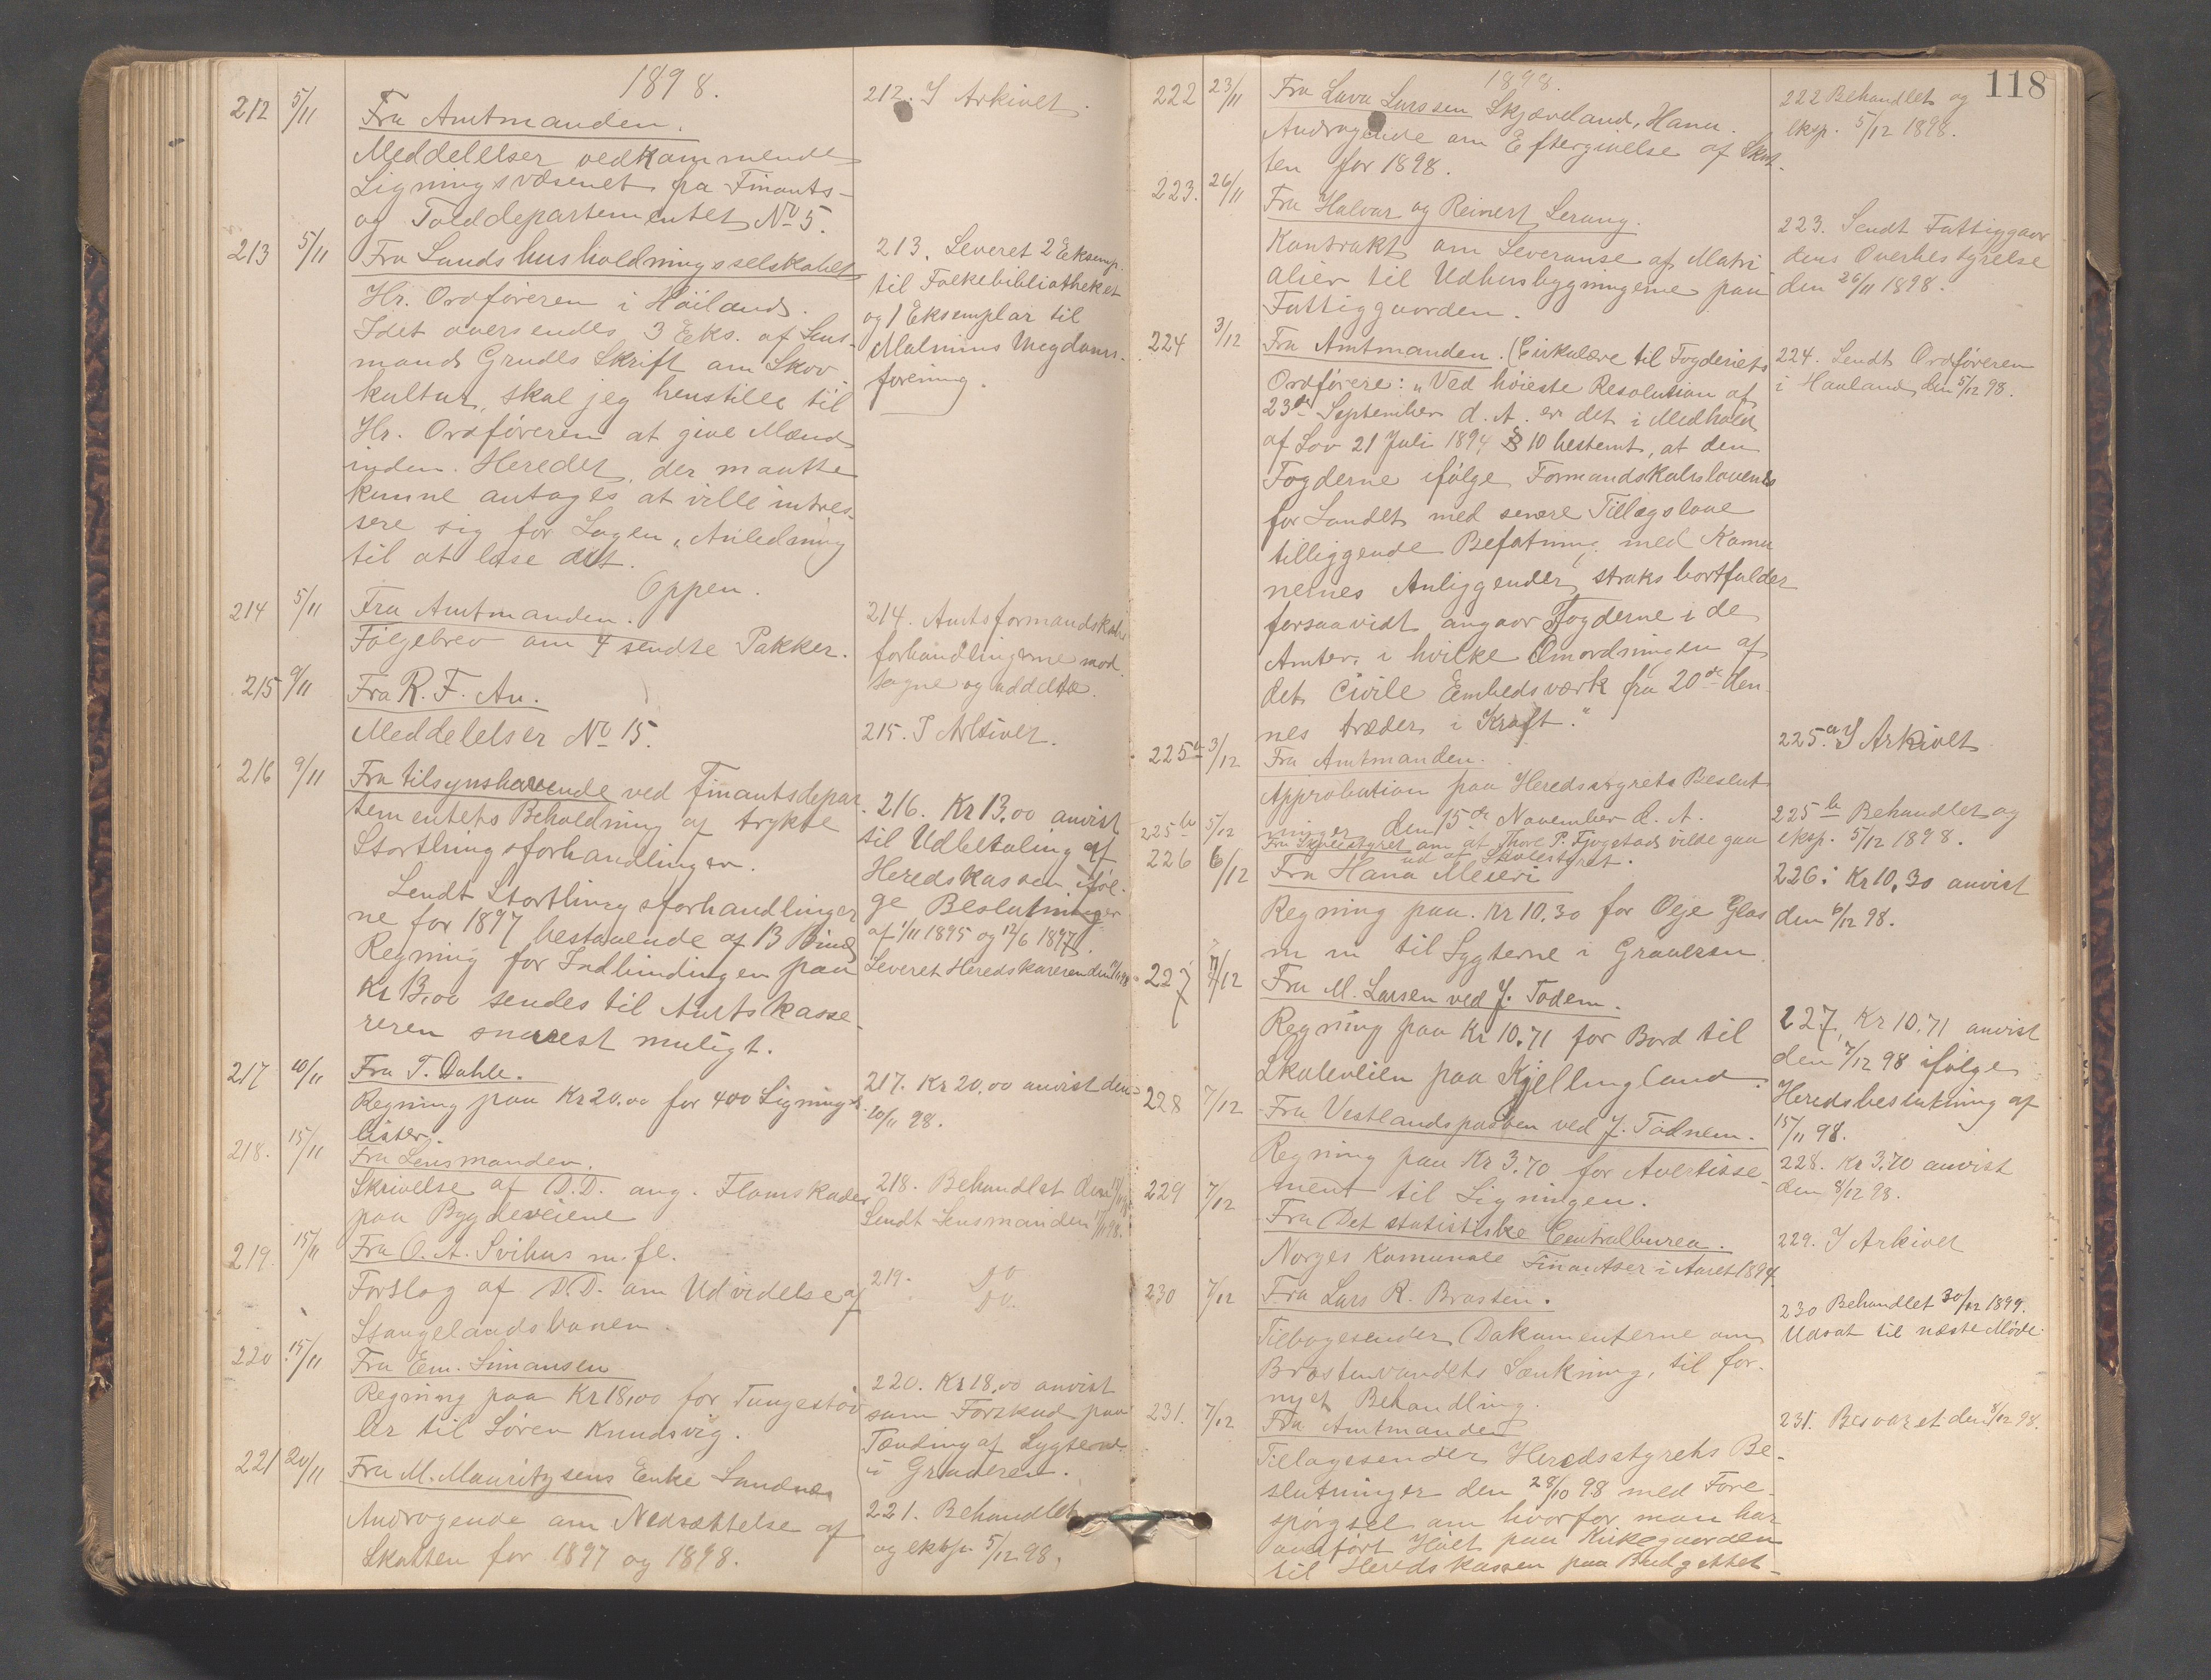 1898.
212 5/11 Fra Amtmanden.
Meddelelser vedkommende
Ligningsvæsenet fra Finants-
og Tolddepartementet No 5.
212. I Arkivet.
213 5/11 Fra Landshusholdningsselskabet
Hr. Ordføreren i Høiland.
Idet oversendes 3 Eks. af Lens-
mand Grudes Skrift om Skov
kultur, skal jeg henstille til
Hr. Ordføreren at give Mænd
inden Heredet, der maatte
kunne antages at ville intres-
sere sig for Sagen, Anledning
til at læse det.
Oppen.
213. Leveret 2 Eksemp.
til Folkebibliotheket
og 1 Eksemplar til
Malmins Ungdoms-
forening.
214 5/11 Fra Amtmanden.
Følgebrev om 4 sendte Pakker.
214. Amtsformandskabs
forhandlingerne mod
tagne og uddelte.
215 9/11 Fra R. F. Au.
Meddelelser No 15.
215. I Arkivet.
216 9/11 Fra tilsynshavende ved Finantsdepar
tementets Beholdning af trykte
Storthingsforhandlinger.
Sendt Storthingsforhandlinger
ne for 1897 bestaaende af 13 Bind
Regning for Indbindingen paa
Kr 13,00 sendes til Amtskasse-
reren snarest muligt.
216. Kr 13,00 anvist
til Udbetaling af
Heredskassen iføl-
ge Beslutninger
af 1/11 1895 og 12/6 1897.
Leveret Heredskassereren den
217 10/11 Fra T. Dahle.
Regning paa Kr 20.00 for 400 Lignings-
lister.
217. Kr 20,00 anvist den
10/11 98.
218. 15/11 Fra Lensmanden.
Skrivelse af D.D. ang. Flomskader
paa Bygdeveiene
218. Behandlet den
Sendt Lensmanden
219. 15/11 Fra O. A. Svihus m. fl.
Forslag af D.D. om Udvidelse af
Stangelandsbanen.
219. Do
Do.
220 15/11 Fra Em. Simonsen
Regning paa Kr 18,00 for Tungestøv
ler til Søren Knudsvig.
220. Kr 18,00 anvist
som Forskud paa
Tænding af Lygterne
i Graveren.
221 20/11 Fra M. Mauritzsens Enke Sandnes
Andragende om Nedsættelse af
Skatten for 1897 og 1898.
221. Behandlet
og eksp. 5/12 98.
118
1898.
222 23/11 Fra Lava Larssen Skjæveland, Hana.
Andragende om Eftergivelse af Skat-
ten for 1898.
222 Behandlet og
eksp. 5/12 1898.
223. 26/11 Fra Halvar og Reinert Lerang.
Kontrakt om Leveranse af Matri
alier til Udhusbygningerne paa
Fattiggaarden.
223. Sendt Fattiggaar
dens Overbestyrelse
den 26/11 1898.
224 3/12 Fra Amtmanden. (Cirkulære til Fogderiets
Ordførere: "Ved høieste Resolution af
23de September d. A. er det i Medhold
af Lov 21 Juli 1894 § 10 bestemt, at den
Fogderne ifølge Formandskabslovens
for Landet med senere Tillægslove
tilliggende Befatning med Komu
nernes Anliggender, straks bortfalder
forsaavidt angaar Fogderne i de
Amter, i hvilke Omordningen af
det Civile Embedsværk fra 20de den-
nes træder i Kraft."
224. Sendt Ordføreren
i Haaland den 5/12 98.
225a 3/12 Fra Amtmanden.
Approbation paa Heredsstyrets Beslut
ninger den 15de November d. A.
225.a I Arkivet
225b 5/12 Fra Skolestyret om at Thore P. Fjogstad vilde gaa
ud af Skolestyret.
225b Behandlet og
eksp. 5/12 1898.
226 6/12 Fra Hana Meieri
Regning paa Kr 10,30 for Olje Glas
m m til Lygterne i Graveren
226. Kr 10,30 anvist
den 6/12 98.
227 7/12 Fra M. Larsen ved J. Todem.
Regning paa Kr 10.71 for Bord til
Skoleveien paa Kjellingland.
227. Kr 10.71 anvist
den 7/12 98 ifølge
Heredsbeslutning af
15/11 98.
228 7/12 Fra Vestlandsposten ved J. Tødnem.
Regning paa Kr 3.70 for Avertisse-
ment til Ligningen.
228. Kr 3,70 anvist
den 8/12 98.
229 7/12 Fra Det statistiske Centralburea.
Norges Komunale Finantser i Aaret 1894
229. I Arkivet
230 7/12 Fra Lars R. Brosten.
Tilbagesender Dokumenterne om
Brostenvandets Sænkning, til for-
nyet Behandling.
230 Behandlet 30/12 1899.
Udsat til næste Møde.
231. 7/12 Fra Amtmanden
Tilbagesender Heredsstyrets Be-
slutninger den 28/10 98 med Fore-
spørgsel om hvorfor man har
overført Høiet paa Kirkegaarden
til Heredskassen paa Budgettet-
231. Besvaret den 8/12 98.